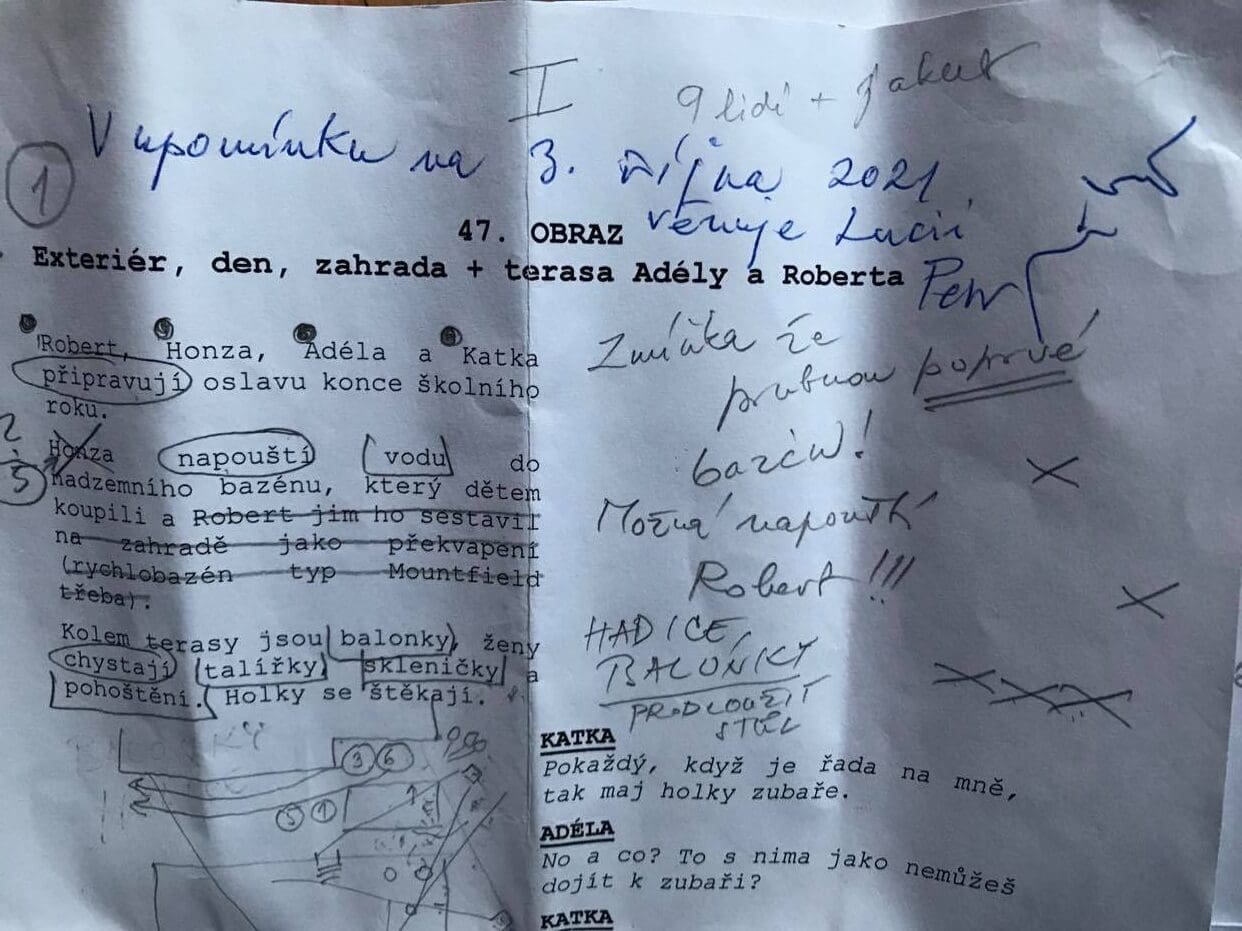 I
9 lidí +
V upomínku na 3. října 2021
1
věnuje Lucii
Petr
47. OBRAZ
Exteriér, den, zahrada + terasa Adély a Roberta
Robert, Honza, Adéla a Katka
připravují oslavu konce školního
roku.
Zmínka že
poprvé
bazén!
2
5
Honza napouští vodu do
nadzemního bazénu, který dětem
koupili a Robert jim ho sestavil
na zahradě jako překvapení
(rychlobazén typ Mountfield
třeba).
Možná napouští
Robert!!!
Kolem terasy jsou balonky, ženy
chystají talířky, skleničky a
pohoštění. Holky se štěkají.
HADICE,
BALÓNKY
PRODLOUŽIT
STŮL
3 6
5 1
KATKA
Pokaždý, když je řada na mně,
tak maj holky zubaře.
ADÉLA
No a co? To s nima jako nemůžeš
dojít k zubaři?
KATKA